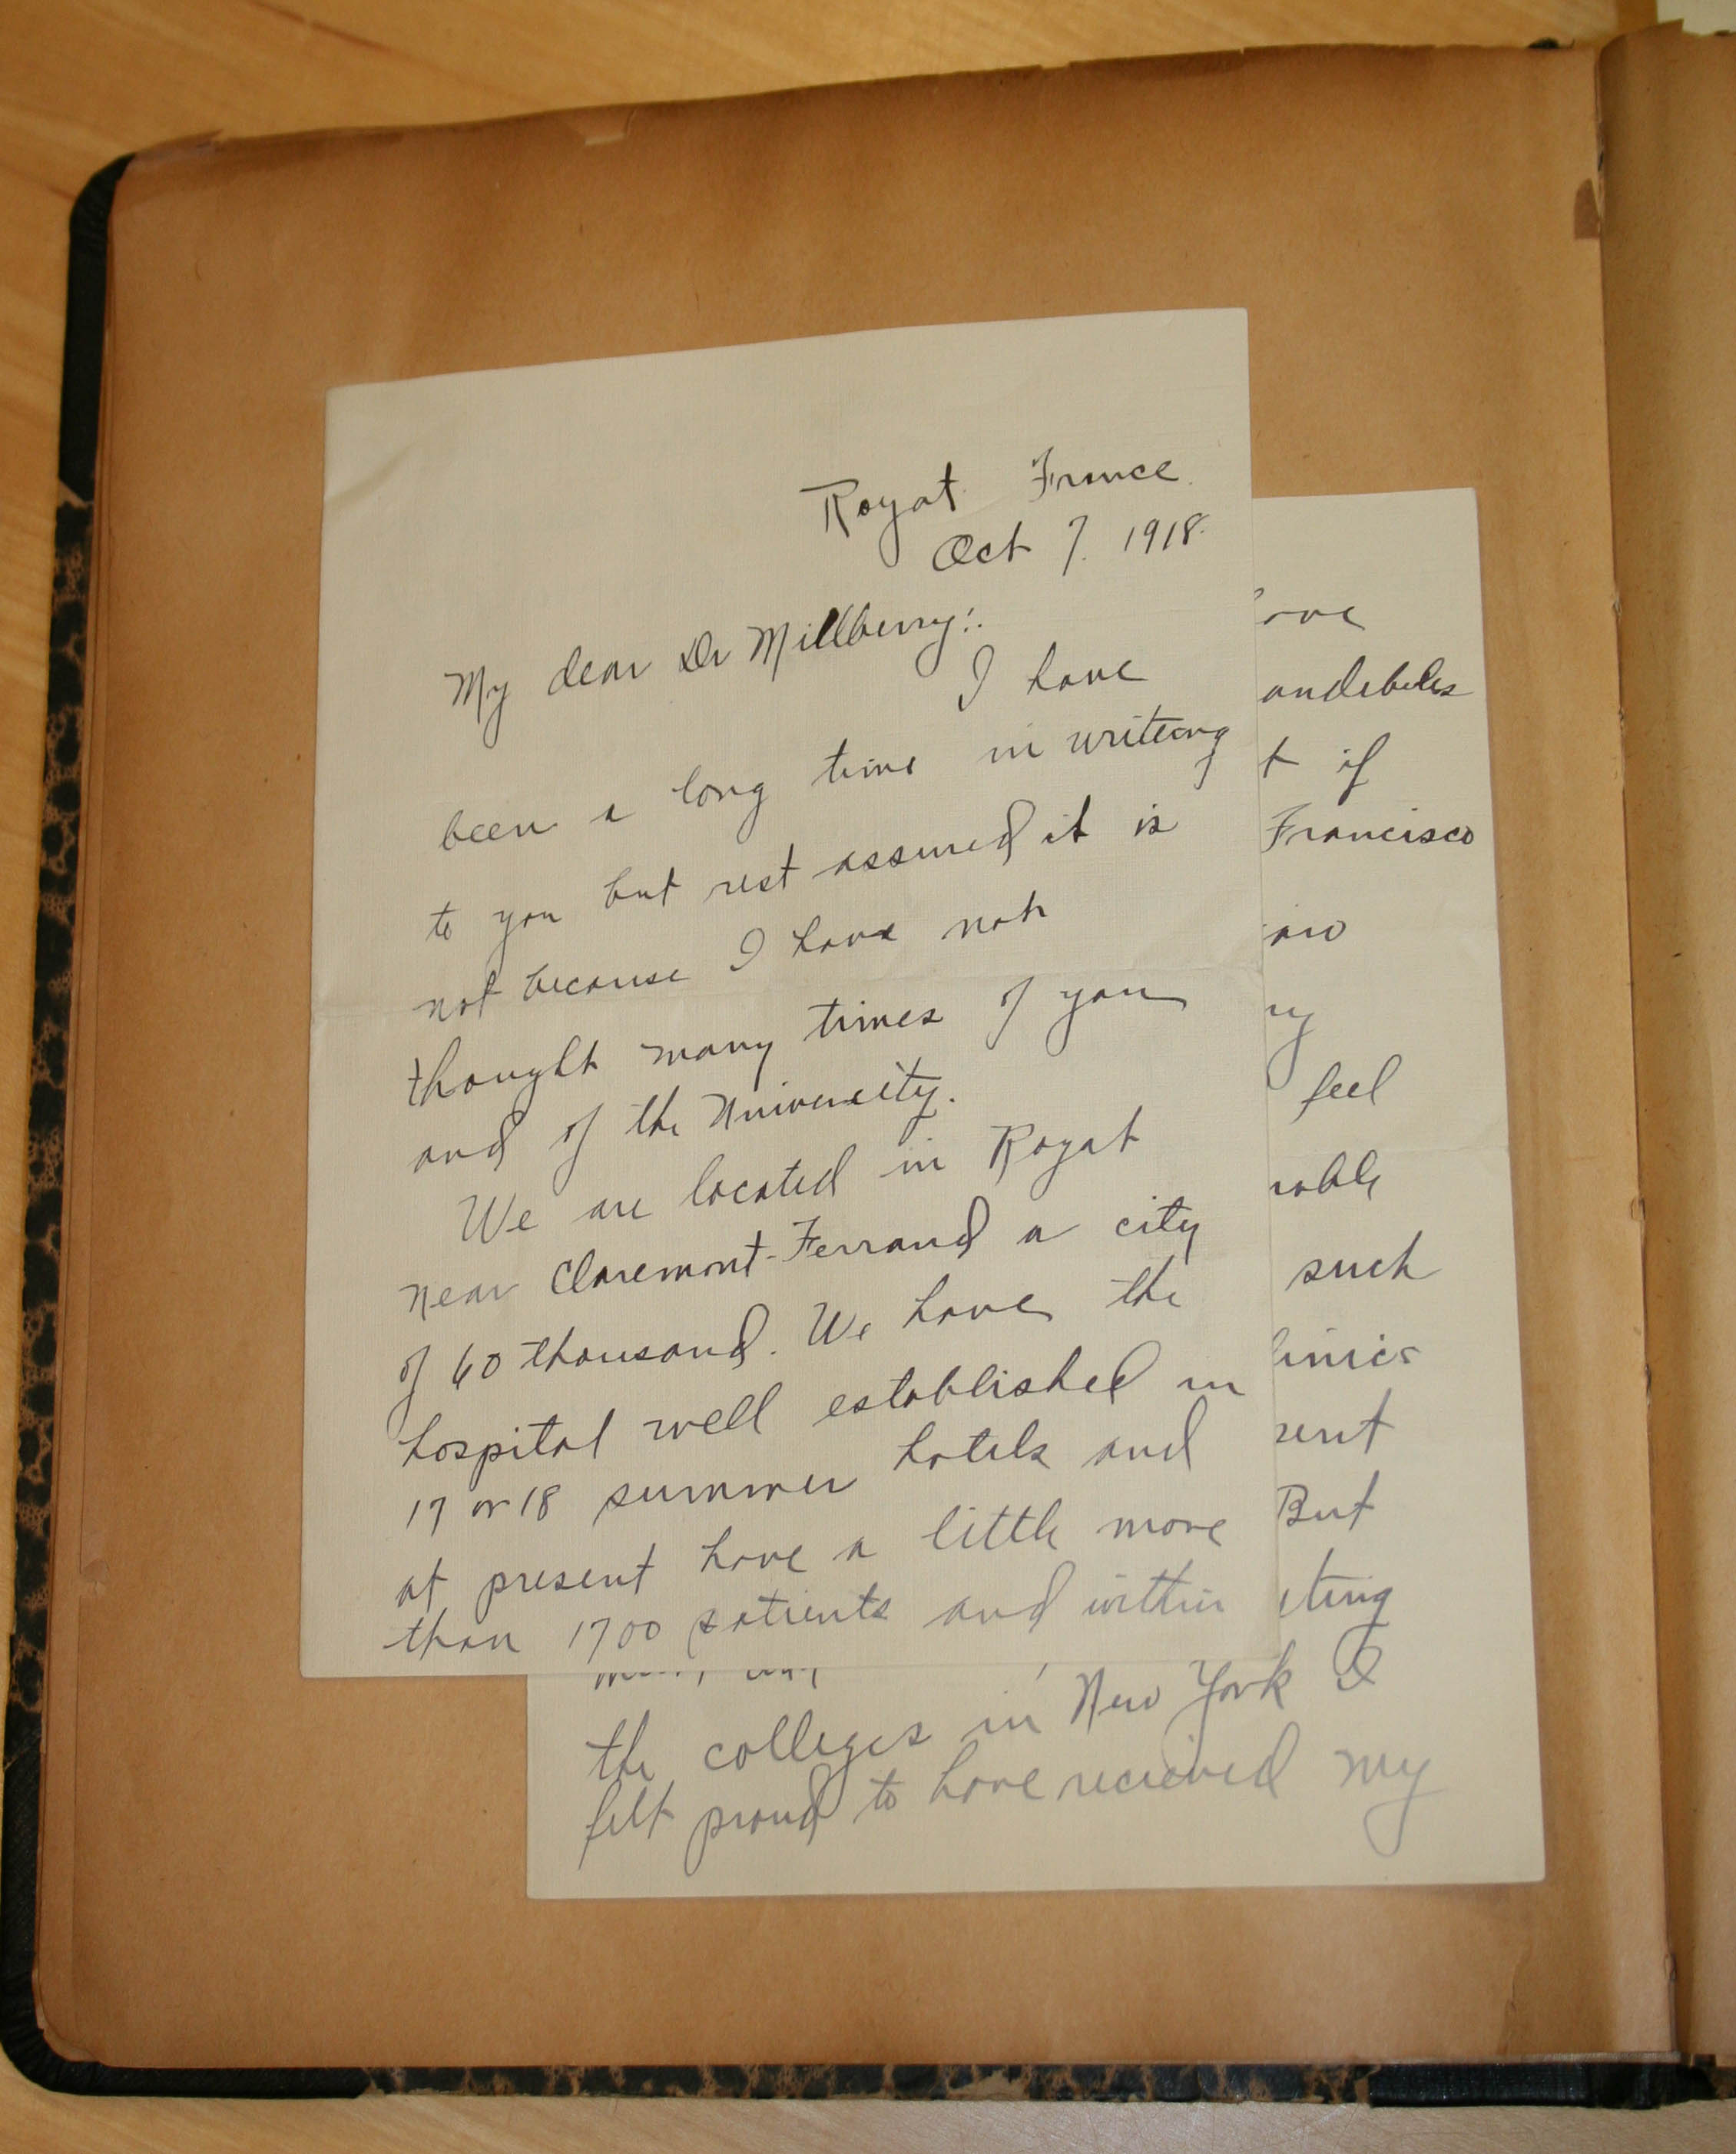 Royat France.
Oct 7. 1918.
My dear Dr Millberry:.
I have
been a long time in writing
to you but rest assured it is
not because I have not
thought many times of you
and of the University.
We are located in Royat
near Claremont-Ferrand a city
of 60 thousand. We have the
hospital well established in
17 or 18 summer hotels and
at present have a little more
than 1700 patients and within
ove
andibles
t if
Francisco
ny
feel
rable
such
linics
sent
But
ting
the colleges in New York I
felt proud to have recieved my